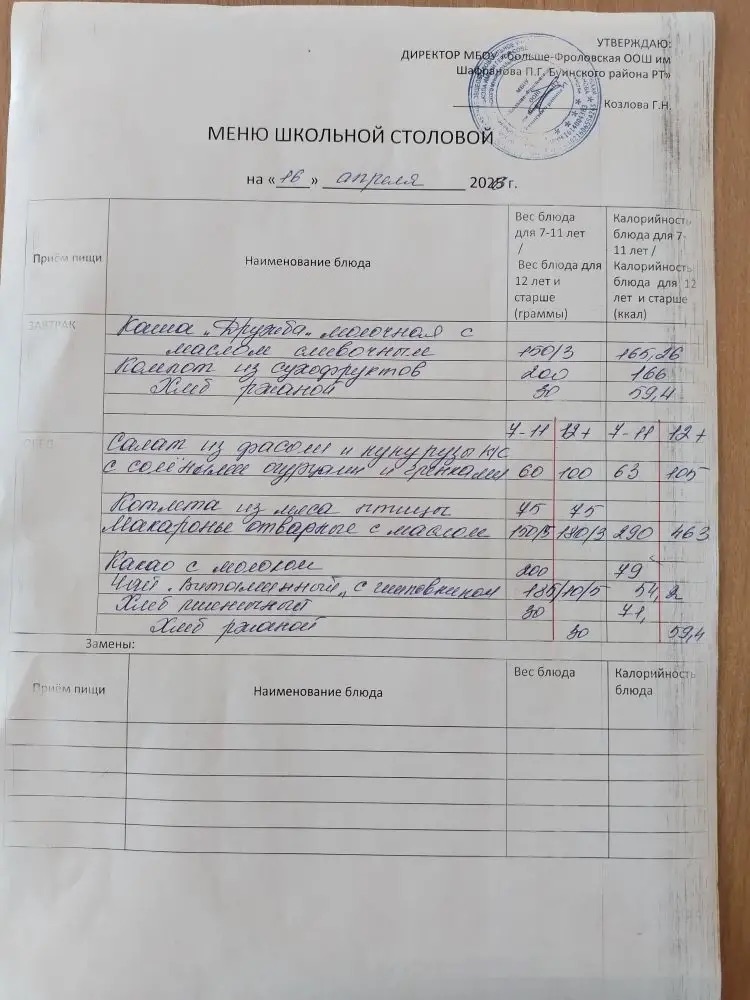 УТВЕРЖДАЮ:
ДИРЕКТОР МБОУ «Больше-Фроловская ООШ им
Шафранова П.Г. Буинского района РТ»
Козлова Г.Н.
МЕНЮ ШКОЛЬНОЙ СТОЛОВОЙ
на «16» апреля 2023 г.
Приём пищи Наименование блюда Вес блюда для 7-11 лет / Вес блюда для 12 лет и старше (граммы) Калорийность блюда для 7-11 лет / Калорийность блюда для 12 лет и старше (ккал)
ЗАВТРАК Каша „Дружба" молочная с
маслом сливочным 150/3 165,26
Компот из сухофруктов 200 166
Хлеб ржаной 30 59,4
7-11 12+ 7-11 12+
ОБЕД Салат из фасоли и кукурузы к/с
с солёными огурцами и гренками 60 100 63 105
Котлета из мяса птицы 75 75
Макароны отварные с маслом 150/5 180/3 290 463
Какао с молоком 200 79
Чай „Витаминный" с шиповником 185/10/5 54,2
Хлеб пшеничный 30 71,
Хлеб ржаной 30 59,4
Замены:
Приём пищи Наименование блюда Вес блюда Калорийность блюда